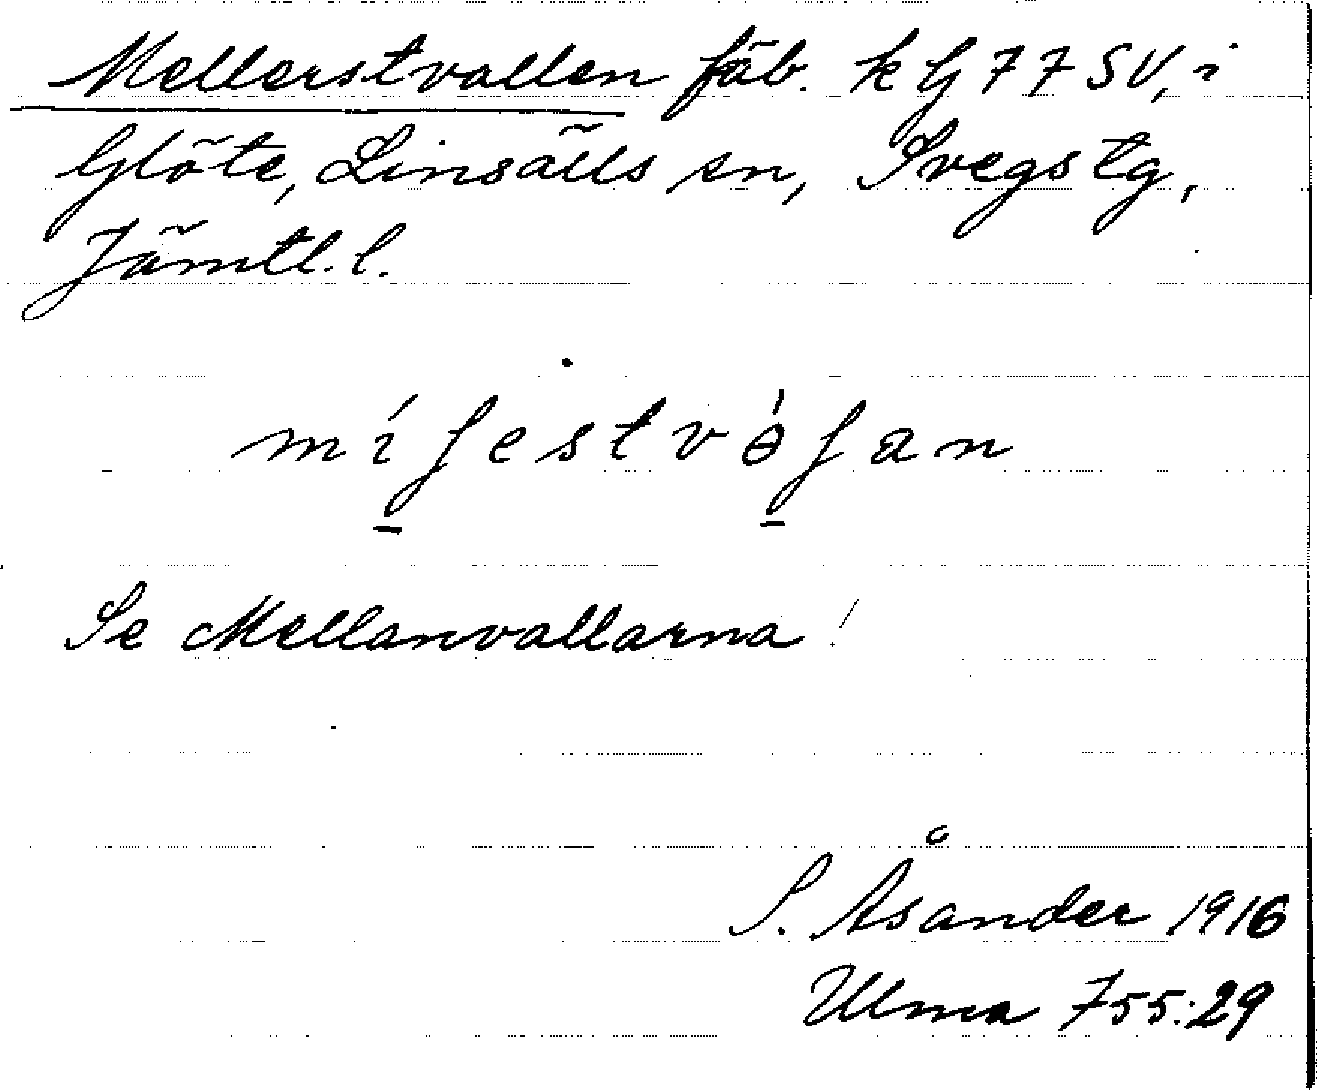 Mellerstvallen fäb. k G 77 SV, i
Glöte, Linsälls sn, Svegs tg,
Jämtl. l.
Se Mellanvallarna!
S. Åsander 1916
Ulma 755:29